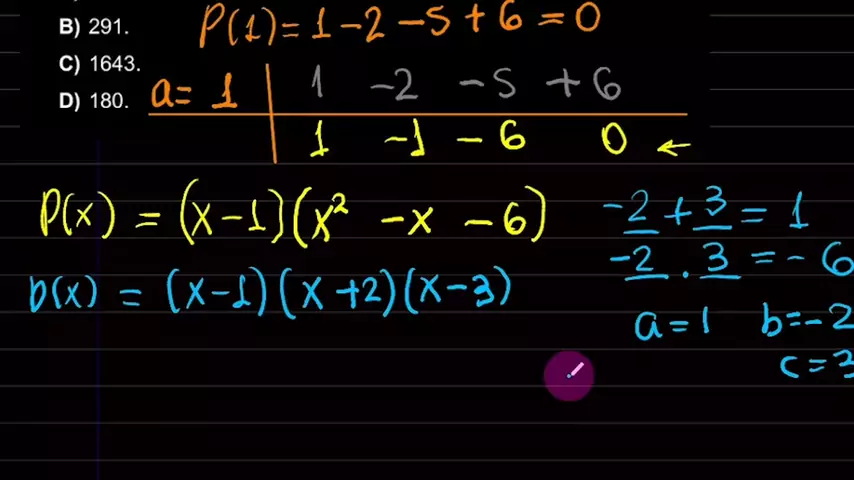 B) 291.
P(1) = 1 - 2 - 5 + 6 = 0
C) 1643.
D) 180.
a = 1 | 1 -2 -5 +6
1 -1 -6 0 ←
P(x) = (x-1)(x² - x - 6)
-2 + 3 = 1
-2 . 3 = - 6
p(x) = (x-1)(x+2)(x-3)
a = 1 b = -2
c = 3